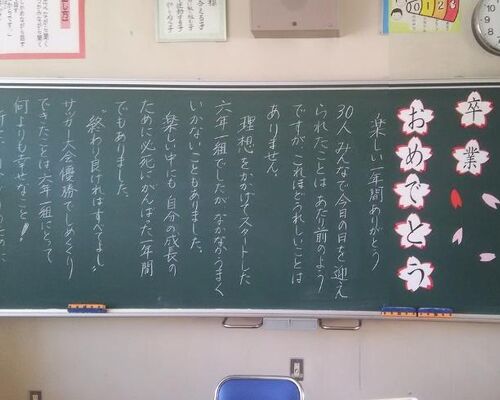 卒業
おめでとう
楽しい一年間ありがとう
30人みんなで今日の日を迎え
られたことは あたり前のよう
ですが これほどうれしいことは
ありません。
理想をかかげてスタートした
六年一組でしたが なかなかうまく
いかないこともありました。
楽しい中にも 自分の成長の
ために必死にがんばった一年間
でもありました。
"終わり良ければすべてよし"
サッカー大会優勝でしめくくり
できたことは 六年一組にとって
何よりも幸せなこと!